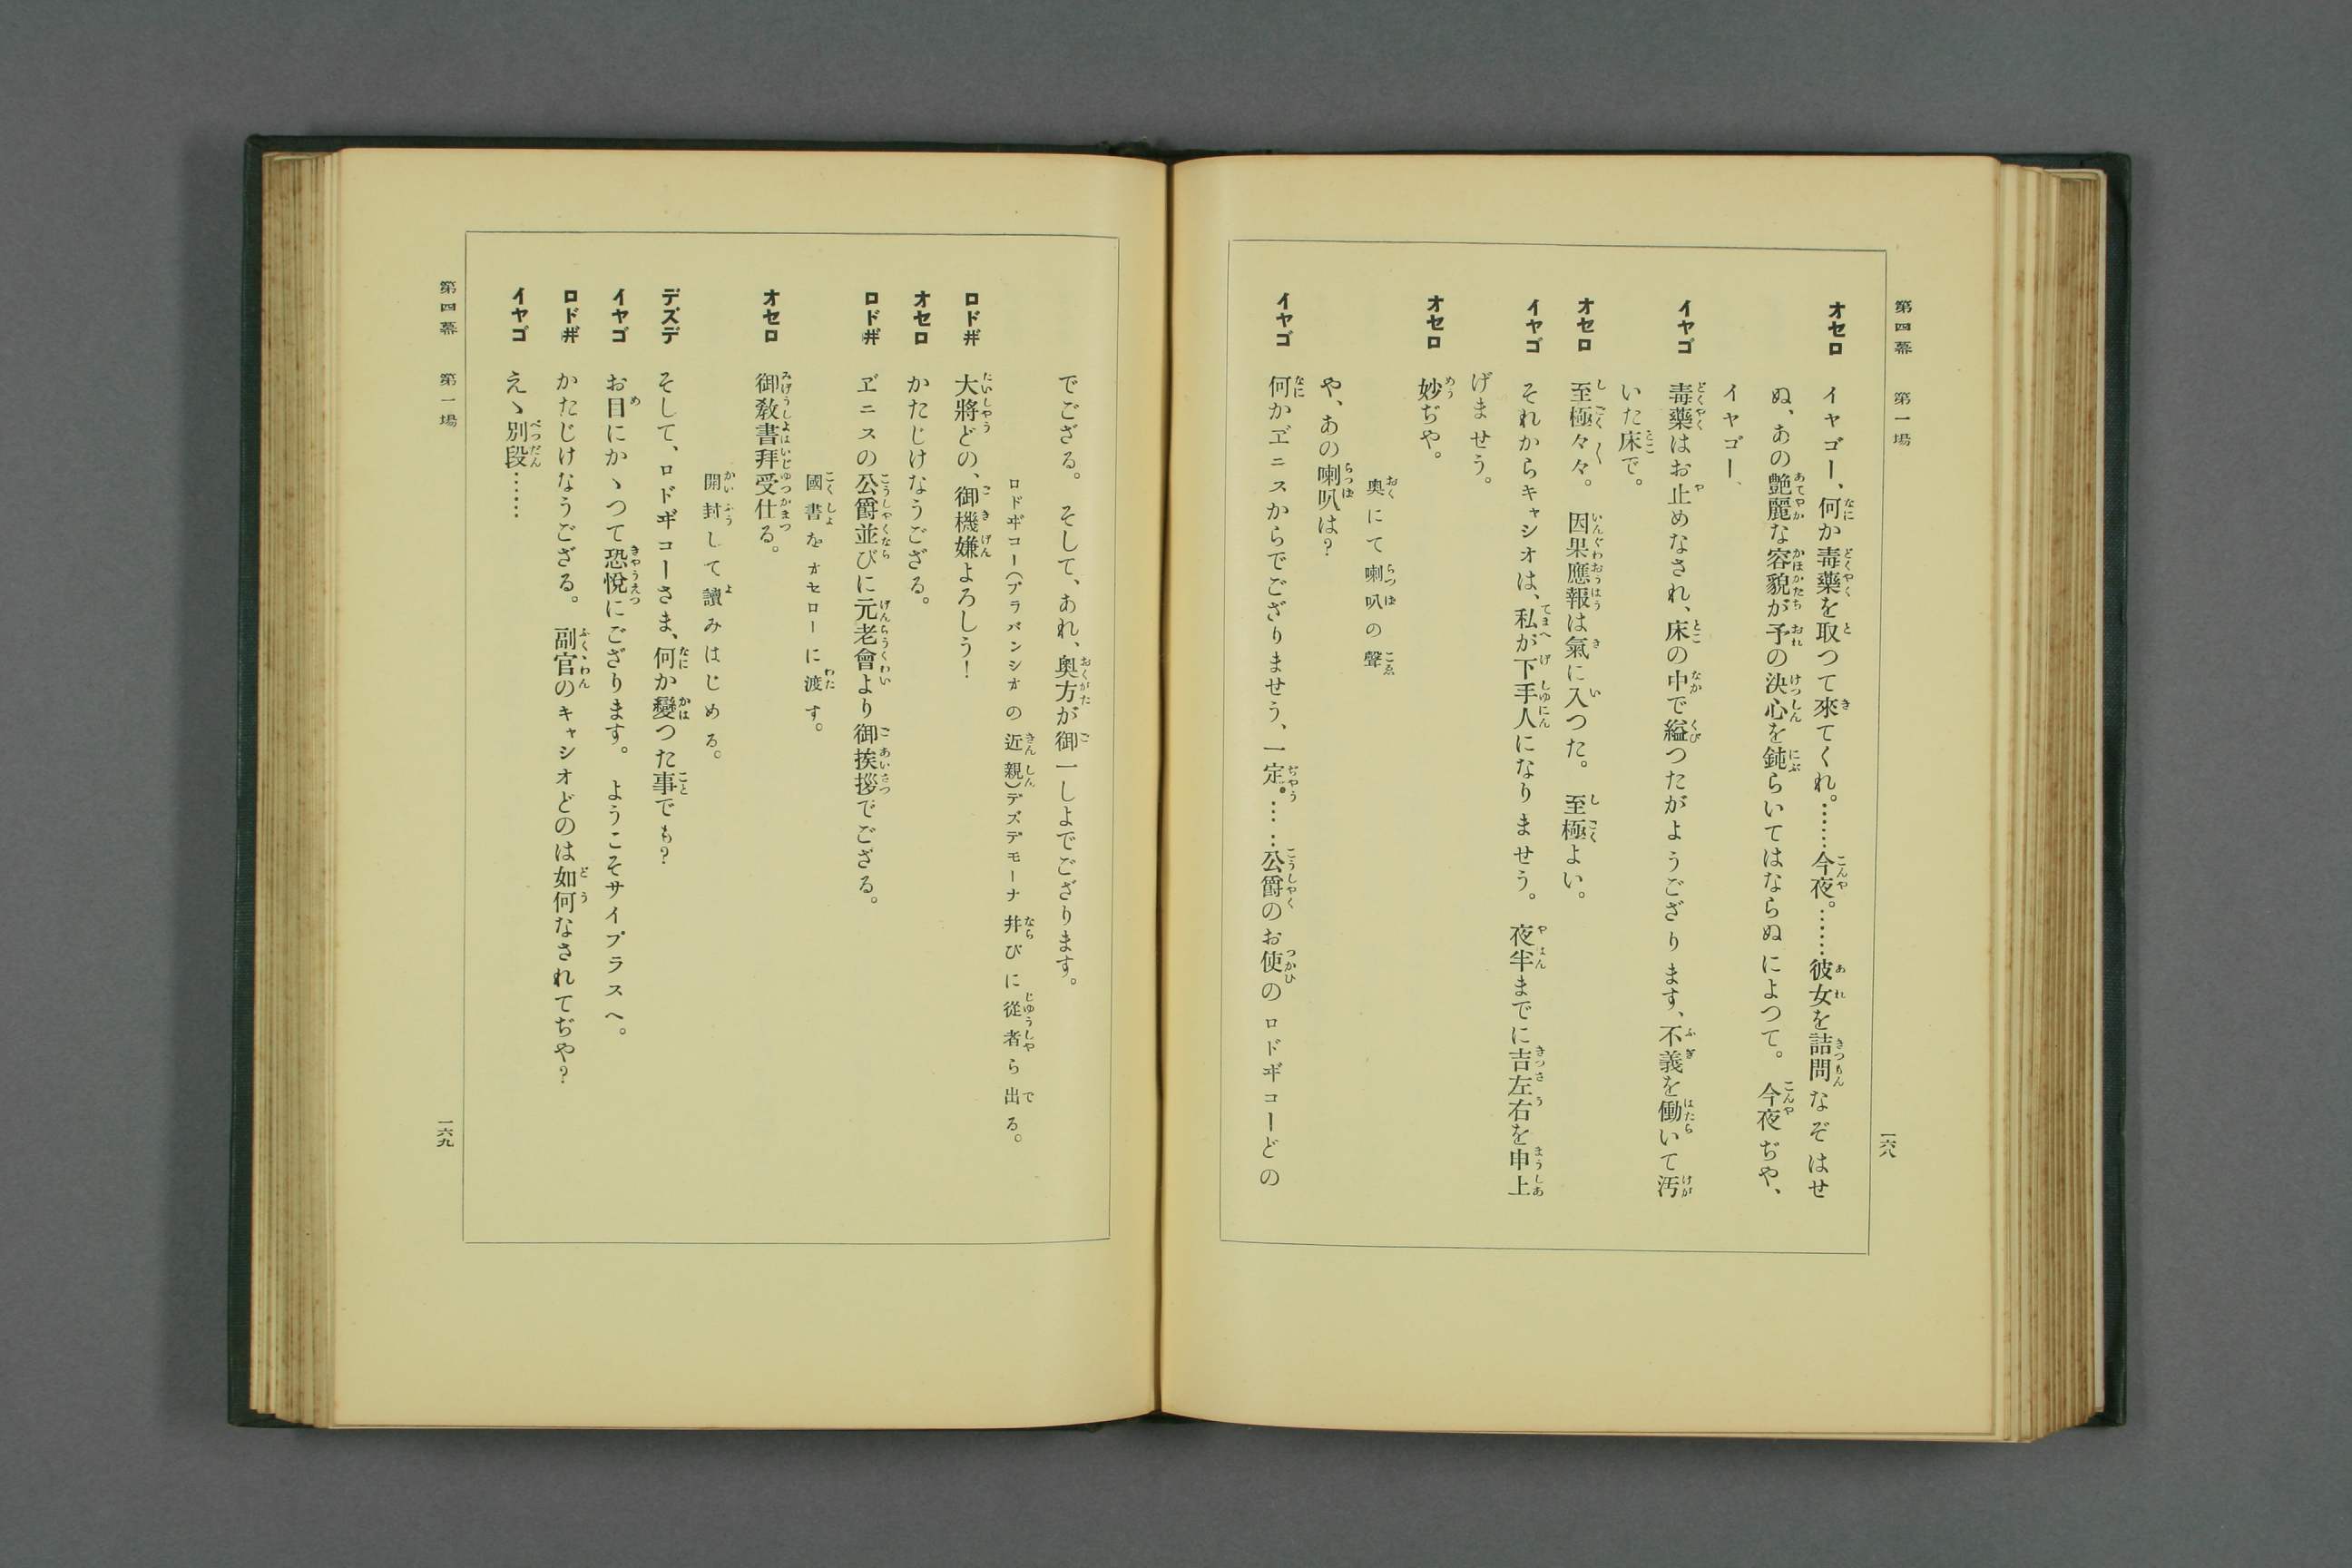 第四幕　第一場
一六八
オセロ　イヤゴー、何か毒藥を取つて來てくれ。……今夜。……彼女を詰問なぞはせ
ぬ、あの艶麗な容貌が予の決心を鈍らいてはならぬによつて。　今夜ぢや、
イヤゴー、
イヤゴ　毒藥はお止めなされ、床の中で縊つたがようござります、不義を働いて汚
いた床で。
オセロ　至極々々。　因果應報は氣に入つた。　至極よい。
イヤゴ　それからキャシオは、私が下手人になりませう。　夜半までに吉左右を申上
げませう。
オセロ　妙ぢや。
奧にて喇叭の聲
や、あの喇叭は?
イヤゴ　何かヹニスからでござりませう、一定。……公爵のお使のロドヸコーどの
でござる。　そして、あれ、奧方が御一しよでござります。
ロドヸコー(ブラバンシオの近親)デズデモーナ幷びに從者ら出る。
ロドヸ　大將どの、御機嫌よろしう!
オセロ　かたじけなうござる。
ロドヸ　ヹニスの公爵並びに元老會より御挨拶でござる。
國書をオセローに渡す。
オセロ　御教書拜受仕る。
開封して讀みはじめる。
デズデ　そして、ロドヸコーさま、何か變つた事でも?
イヤゴ　お目にかゝつて恐悅にござります。　ようこそサイプラスへ。
ロドヸ　かたじけなうござる。　副官のキャシオどのは如何なされてぢや?
イヤゴ　えゝ別段……
第四幕　第一場
一六九